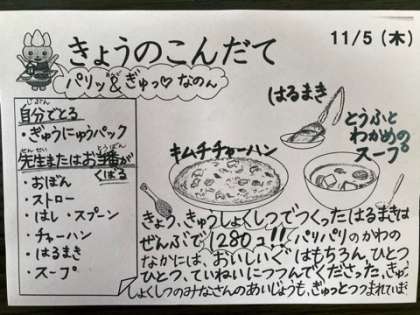 きょうのこんだて
11/5 (木)
パリッ&ぎゅっ♡なのん
じぶん
自分でとる
・ぎゅうにゅうパック
せんせい とうばん
先生またはお当番が
くばる
・おぼん
・ストロー
・はし・スプーン
・チャーハン
・はるまき
・スープ
はるまき
キムチチャーハン
とうふと
わかめの
スープ
きょう、きゅうしょくしつでつくったはるまきは
ぜんぶで1280コ!!パリパリのかわの
なかには、おいしいぐはもちろん、ひとつ
ひとつ、ていねいにつつんでくださった、きゅう
しょくしつのみなさんのあいじょうも、ぎゅっとつつまれています